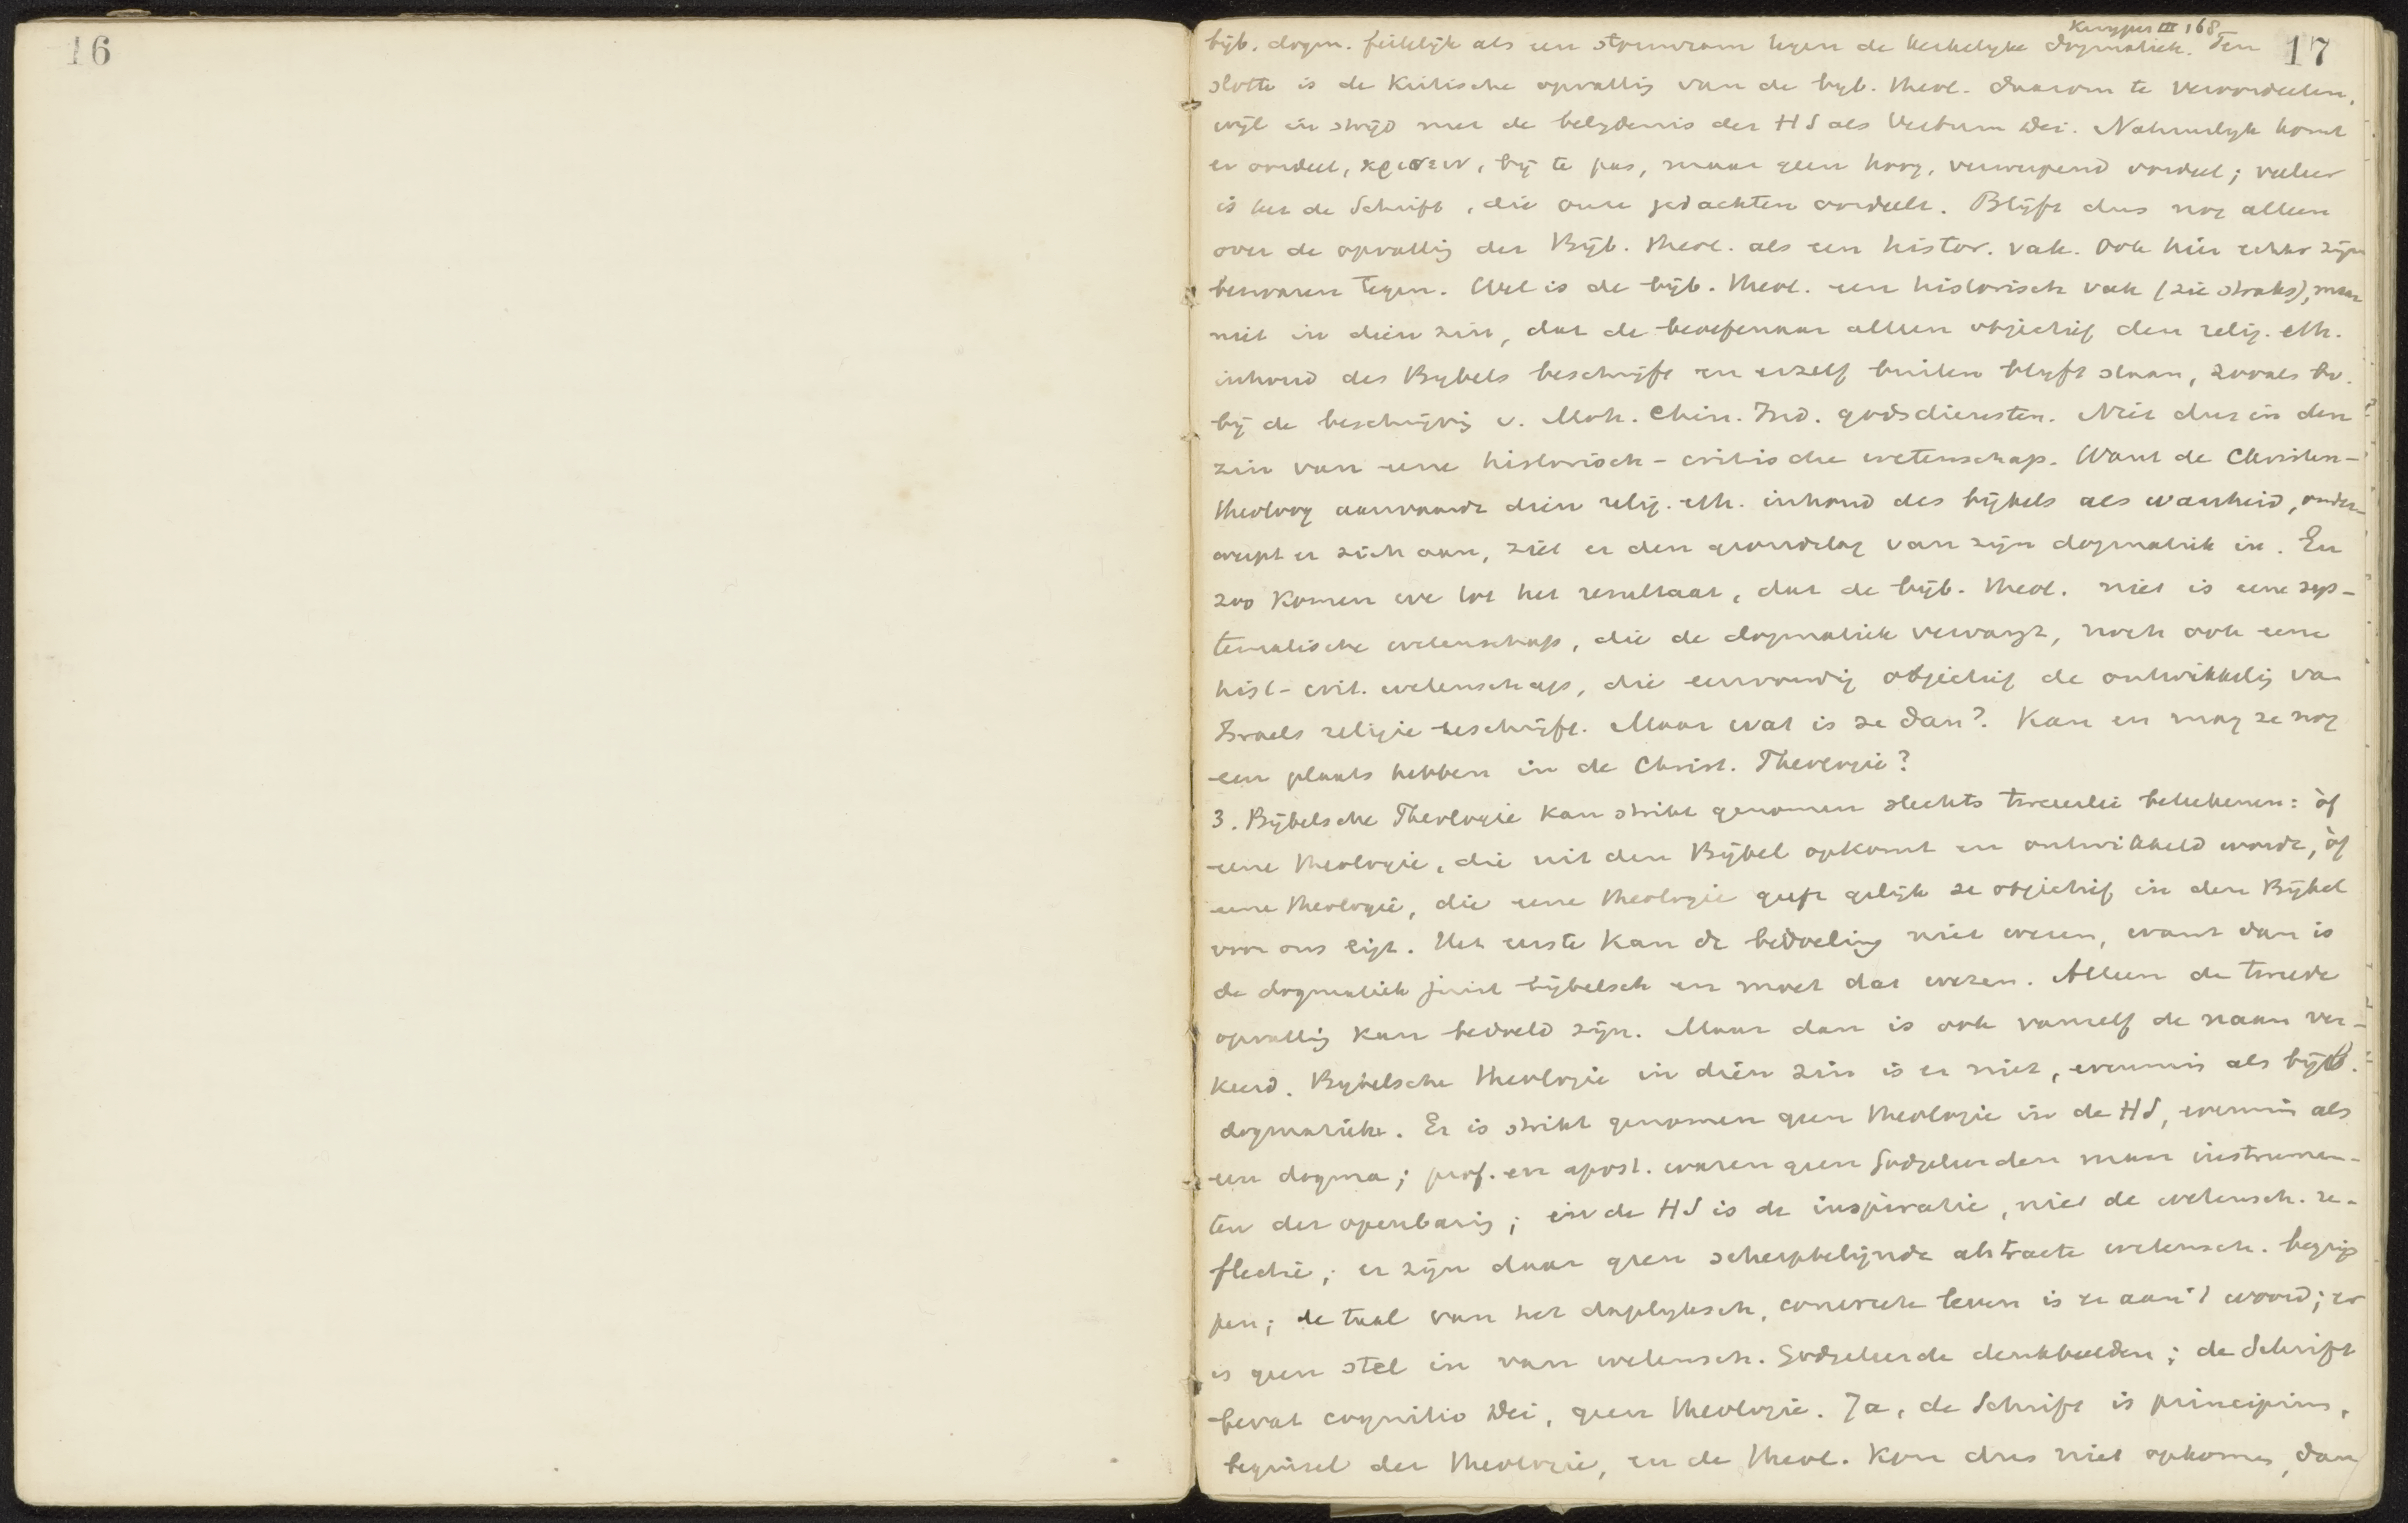 16
Kuyper III 168
17
bijb. dogm. feitelijk als een stormram tegen de kerkelyke dogmatiek. Ten
slotte is de Kritische opvattig van de byb. theol. daarom te veroordeelen,
wijl in strijd met de belydenis der HS als Verbum Dei. Natuurlyk komt
er oordeel, κρισειν, bij te pas, maar geen hoog, verwerpend oordeel; veeleer
is het de Schrift, die onze gedachten oordeelt. Blijft dus nog alleen
over de opvattig der Bijb. theol. als een histor. vak. Ook hier echter zijn
bezwaren tegen. Wel is de bijb. theol. een historisch vak (zie straks), maar
niet in dien zin, dat de beoefenaar alleen objectief den relig. eth.
inhoud des Bybels beschrijft en erzelf buiten blyft staan, zooals bv.
bij de beschrijvig v. Moh. Chin. Ind. godsdiensten. Niet dus in den
zin van eene historisch-critische wetenschap. Want de Christen-
theoloog aanvaardt dien relig. eth. inhoud des bijbels als waarheid, onder-
werpt er zich aan, ziet er den grondslag van zijn dogmatiek in. En
zoo komen we tot het resultaat, dat de bijb. theol. niet is eene sys-
tematische wetenschap, die de dogmatiek vervangt, noch ook eene
hist-crit. wetenschap, die eenvoudig objectief de ontwikkelig van
Israels religie beschrijft. Maar wat is ze dan? Kan en mag ze nog
een plaats hebben in de Christ. Theologie?
3. Bijbelsche Theologie kan strikt genomen slechts tweeerlei beteekenen: òf
eene theologie, die uit den Bijbel opkomt en ontwikkeld wordt, òf
eene theologie, die eene theologie geeft gelijk ze objectief in den Bijbel
voor ons ligt. Het eerste kan de bedoeling niet wezen, want dan is
de dogmatiek juist bijbelsch en moet dat wezen. Alleen de tweede
opvattig kan bedoeld zijn. Maar dan is ook vanzelf de naam ver-
keerd. Bybelsche theologie in dien zin is er niet, evenmin als bijb.
dogmatiek. Er is strikt genomen geen theologie in de HS, evenmin als
een dogma; prof. en apost. waren geen Godgeleerden maar instrumen-
ten der openbarig; in de HS is de inspiratie, niet de wetensch. re-
flectie; er zijn daar geen scherpbelijnde abstracte wetensch. begrip
pen; de taal van het dagelyksch, concrete leven is er aan 't woord; er
is geen stel in van wetensch. Godgeleerde denkbeelden; de Schrift
bevat cognitio Dei, geen theologie. Ja, de Schrift is principium,
beginsel der theologie, en de theol. kon dus niet opkomen, dan